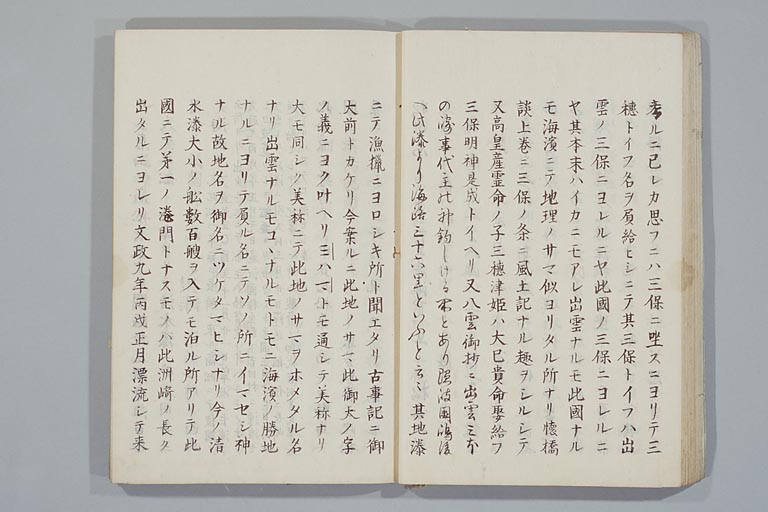 考ルニ己レカ思フニハ三保ニ坐スニヨリテ三
穂トイフ名ヲ負給ヒシニテ其三保トイフハ出
雲ノ三保ニヨレルニヤ此國ノ三保ニヨレルニ
ヤ其本末ハイカニモアレ出雲ナルモ此國ナル
モ海濱ニテ地理ノサマ似ヨリタル所ナリ懐橘
談上巻ニ三保ノ条ニ風土記ナル趣ヲシルシテ
又高皇産霊命ノ子三穂津姫ハ大已貴命娶給フ
三保明神是成トイヘリ又八雲御抄ニ出雲ミほ
の浦事代主の神釣しける所とあり隠岐国
此湊より海路三十六里といふと云々其地湊
ニテ漁猟ニヨロシキ所ト聞エタリ古事記ニ御
大前トカケリ今案ルニ此地ノサマ此御大ノ字
ノ義ニヨク叶ヘリミハマトモ通シテ美称ナリ
大モ同シク美称ニテ此地ノサマヲホメタル名
ナリ出雲ナルモコヽナルモトモニ海濱ノ勝地
ナルニヨリテ負ル名ニテソノ所ニイマセシ神
ナル故地名ヲ御名ニツケタマヒシナリ今ノ清
水湊大小ノ舩数百艘ヲ入テモ泊ル所アリテ此
國ニテ第一ノ港門トナスモノハ此洲崎ノ長ク
出タルニヨレリ文政九年丙戌正月漂流シテ来